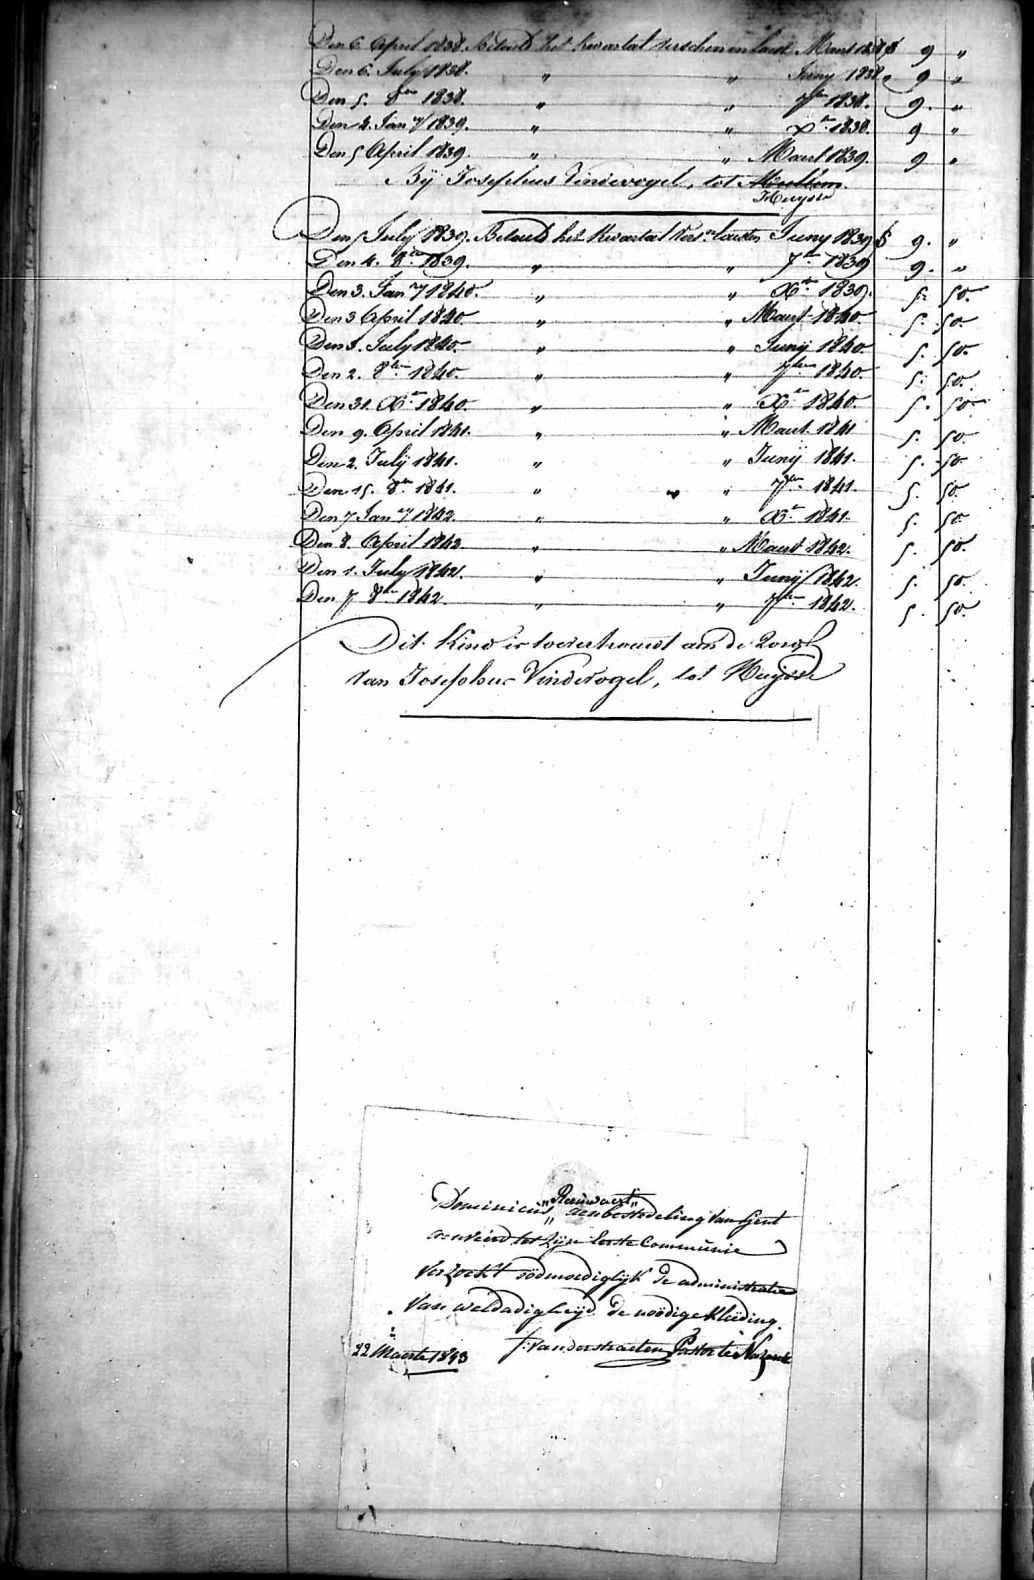 Den 6. April 1838. Betaald het kwartal verschenen laest Maert 1838 § 9 "
Den 6. July 1838. " " Juny 1838. 9 "
Den 5. 8ber 1838. " " 7ber 1838. 9. "
Den 2. Jany 1839. " " Xber 1838. 9 "
Den 5 April 1839. " " Maert 1839. 9 "
Bij Josephus Vindevogel, tot
Huysse
Den 5 July 1839. Betaald het kwartal Vers:en laesten Juny 1839 § 9. "
Den 4. 8ber 1839. " " 7ber 1839 9. "
Den 3. Jany 1840. " " Xber 1839. 5. 50.
Den 3 April 1840. " " Maert 1840. 5. 50.
Den 3. July 1840. " " Junij 1840. 5. 50.
Den 2. 8ber 1840. " " 7ber 1840. 5. 50.
Den 31. Xber 1840. " " Xber 1840. 5. 50
Den 9. April 1841. " " Maert. 1841 5. 50.
Den 2. July 1841. " " Junij 1841. 5. 50.
Den 15. 8ber 1841. " " 7ber 1841. 5. 50.
Den 7 Jany 1842. " " Xber 1841. 5. 50
Den 8. April 1842. " " Maert 1842. 5. 50.
Den 1. July 1842. " " Junij 1842. 5. 50.
Den 7 8ber 1842. " " 7ber 1842. 5. 50.
Dit Kind is toevertrouwt aan de Zorg
van Josephus Vindevogel, tot Huijsse
Dominicus "Reeuwaert" aenbestedeling van Gent
aenveird tot zijn Eerste Communie
verzoekt oodmoediglijk de administratie
van weldadigheyd de noodige kleeding.
22 Maerte 1843 f: vanderstraeten Pastor te Nazareth